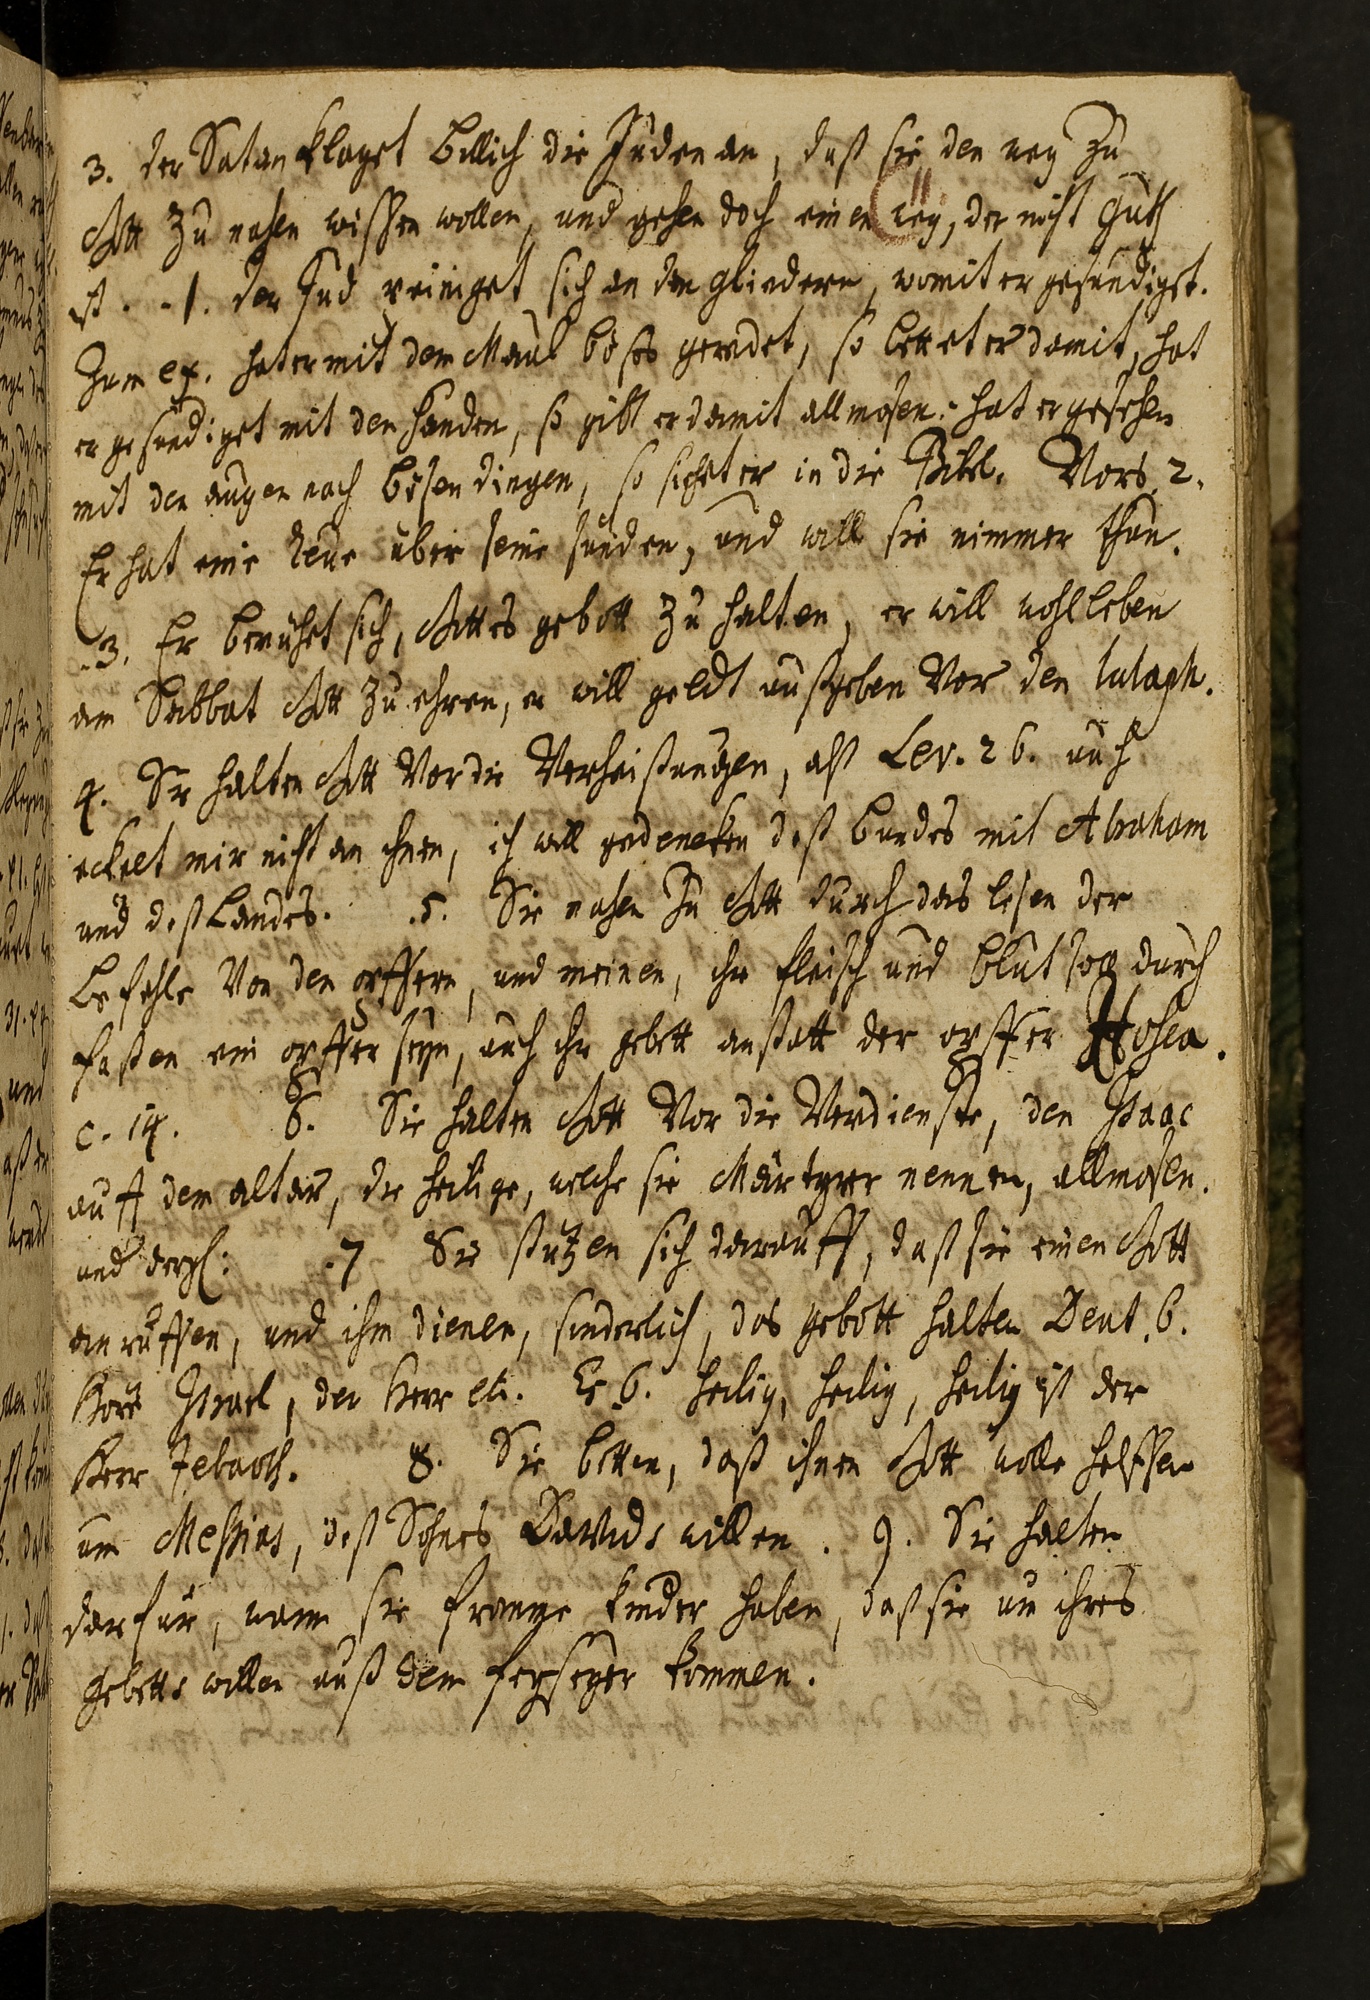 3. der Satan klaget billich die Juden an, daß sie den weg zu
Gott zu nahen wissen wollen, und gehen doch einen weg, der nicht guth
ist. .1. der Jud reiniget sich an den gliedern, womit er gesündiget.
Zum ex. hat er mit dem Maul böses geredet, so bettet er damit, hat
er gesündiget mit den handen, so gibt er damit allmosen. hat er gesehen
mit den augen nach bösen dingen, so sihet er in die Bibel. Vors 2.
Er hat eine reue über seine sünden, und will sie nimmer thun.
.3. Er bemühet sich, Gottes gebott zu halten, er will wohl leben
am Sabbat Gott zu ehren, er will geldt außgeben vor den lulaph.
4. Sie halten Gott vor die Verheissungen, alß Lev. 26. auch
eckelt mir nicht an ihnen, ich will gedencken deß bundes mit Abraham
und deß Landes. .5. Sie nahen zu Gott durch das lesen der
befehle von den opffern, und meinen, ihr fleisch und blut soll durch
fasten ein opffer seyn, auch ihr gebett anstatt der opffer Hosea.
c. 14. 6. Sie halten Gott vor die Verdienste, den Isaac
auff dem altar, die heilige, welche sie Märtyrer nennen, allmosen.
und dergl: .7 Sie stützen sich darauff, daß sie einen Gott
anruffen, und ihm dienen, sonderlich, das gebott halten Deut. 6.
Höre Israel, der Herr etc. Es. 6. heilig, heilig, heilig ist der
Herr Zebaoth. 8. Sie betten, daß ihnen Gott wolle helffen
um Messias, deß Sohnes Davids willen. 9. Sie halten
darfür, wann sie fromme kinder haben, daß sie um ihres
gebetts willen auß dem fegfeyer kommen.